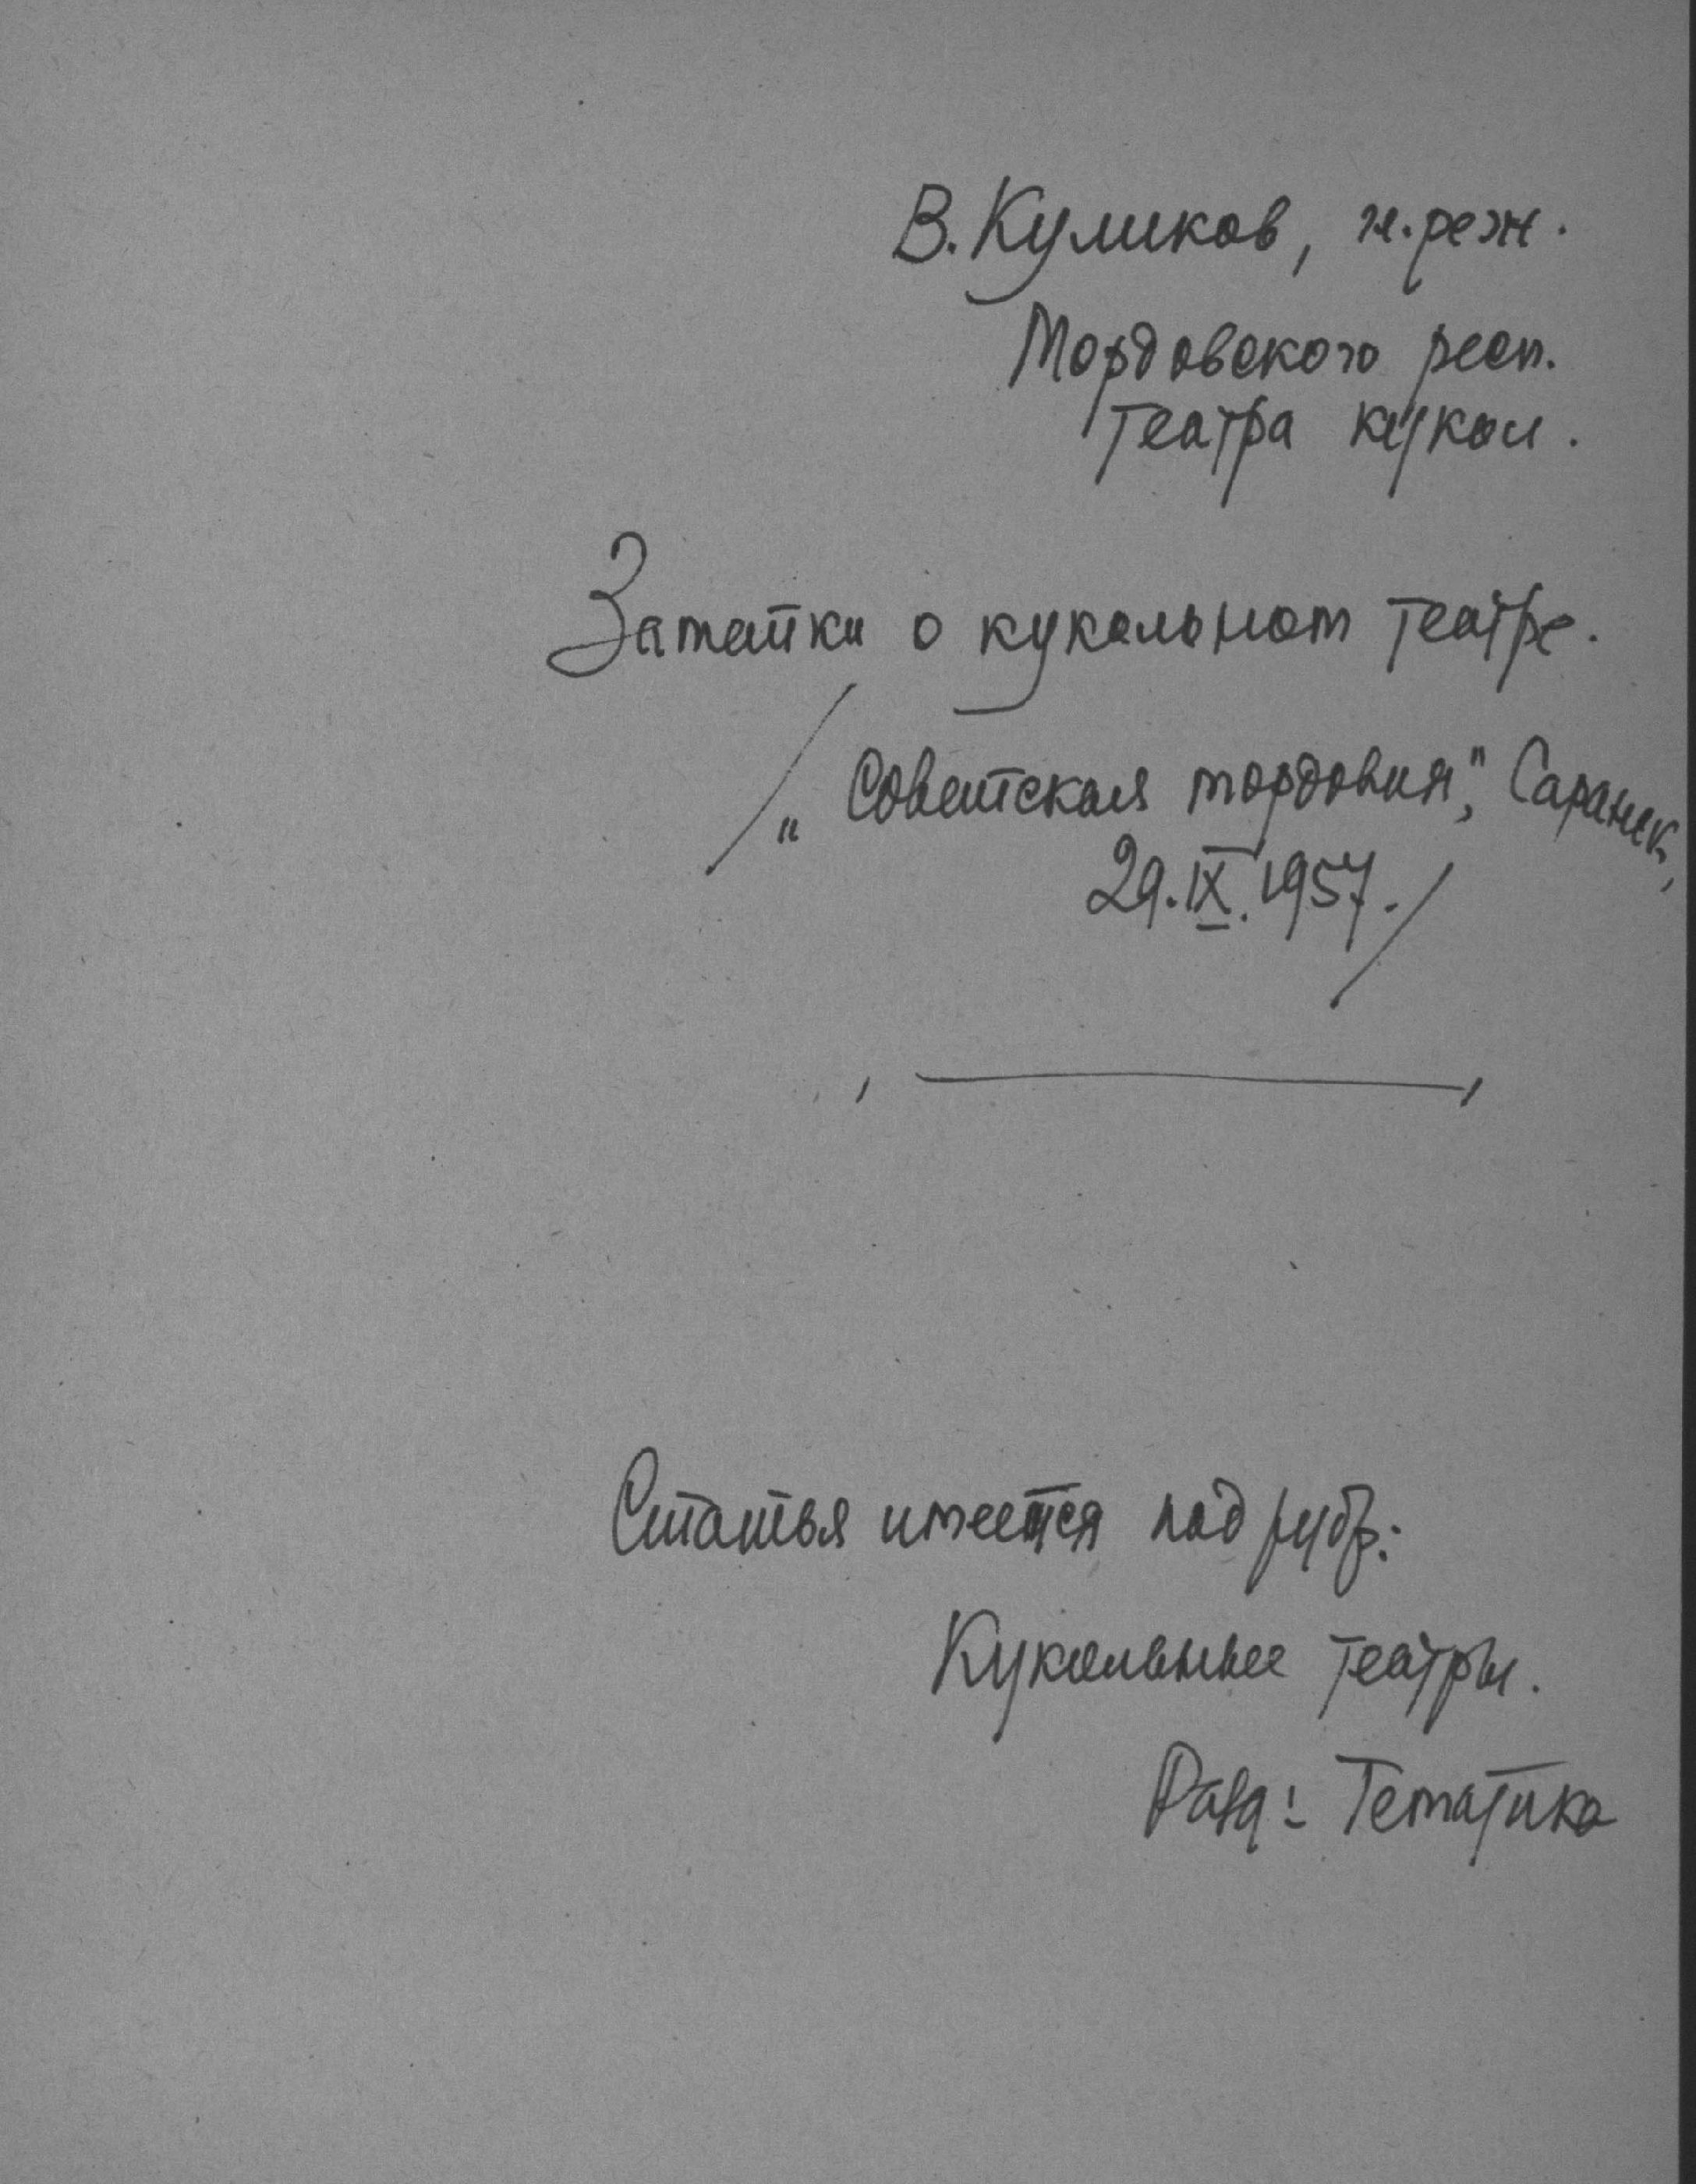 В. Куликов, гл. реж.
Мордовского респ.
театра кукол.
Заметки о кукольном театре.
/„Советская мордовия", Саранск,
29.IX.1957./
Статья имеется под рубр:
Кукольные театры.
Тематика